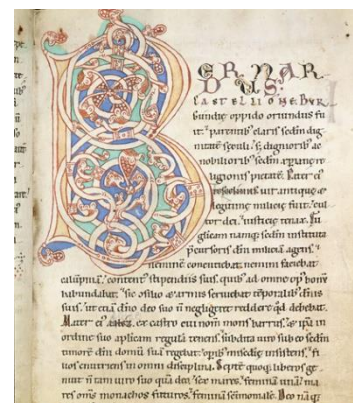 BERNAR
DUS:
CASTELLIONE BUR
gundię oppido oriundus fu
it. parentibus claris scdm dig
nitatē sęculi. s; dignioribus ac
nobiliorib' scdm xpianę re
ligionis pietatē. Pater ei'
uir antiquę &
legitimę milicię fuit. cul
tor dei. iusticię tenax. Eu
glicam namq; scdm instituta
p̄cursoris dn̄i miliciā agens.
neminē concutiebat. nemini faciebat
calūpniā. content' stipendiis suis. quib' ad omne op' bonū
habundabat. Sic &armis seruiebat tēporalib' dn̄is
suis. ut etiā dn̄o deo suo n̄ negligeret reddere qd debebat.
Mater ei' ex castro cui nom̄ mons barrus. & ip̄a in
ordine suo aplicam regulā tenens. subdita uiro sub eo scdm
timorē dei domū suā regebat. opib' insistens. fi
lios enutriens in omni disciplina. Septē quippe liberos ge
nuit n̄ tam uiro suo quā deo. sex mares. feminā unā. ma
res om̄s monachos futuros. feminā Deo naq;